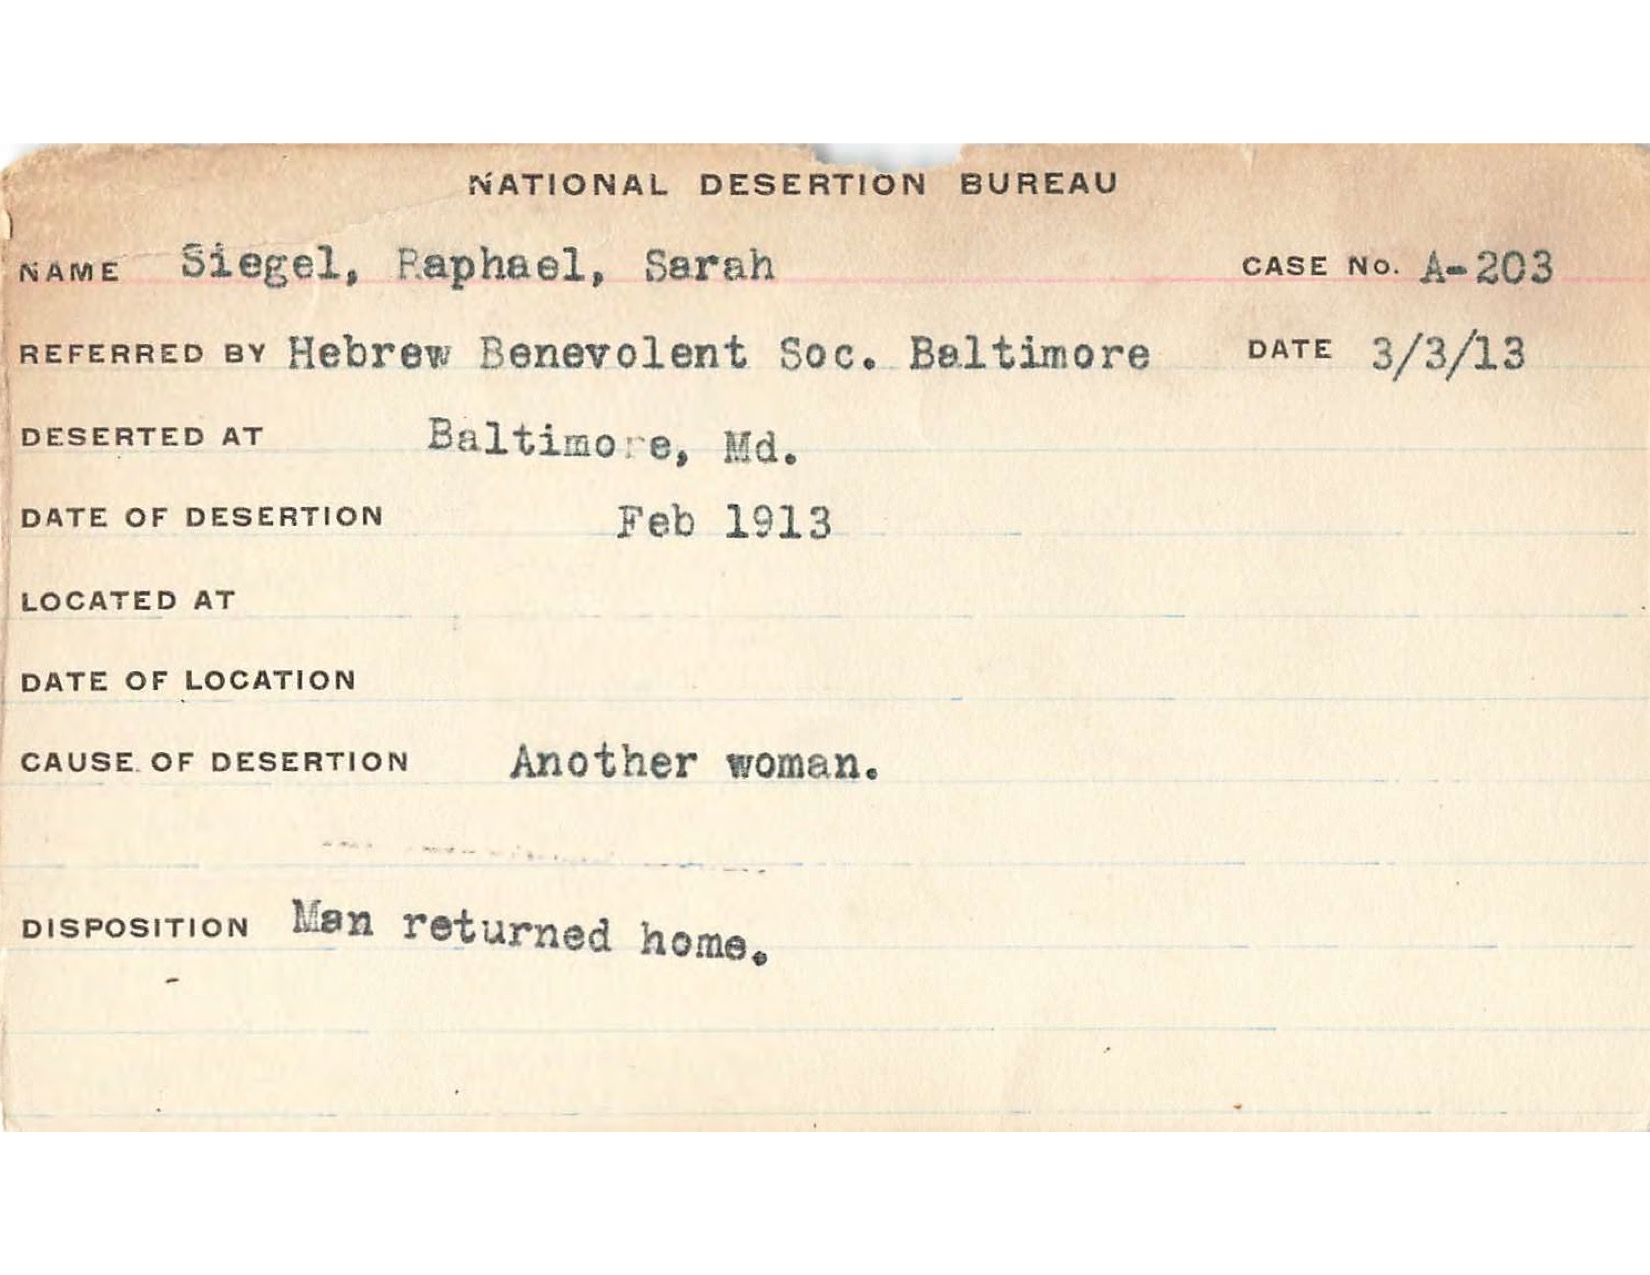 NATIONAL DESERTION BUREAU
NAME Siegel, Raphael, Sarah CASE No. A-203
REFERRED BY Hebrew Benevolent Soc. Baltimore DATE 3/3/13
DESERTED AT Baltimore, Md.
DATE OF DESERTION Feb 1913
LOCATED AT
DATE OF LOCATION
CAUSE OF DESERTION Another woman.
DISPOSITION Man returned home.